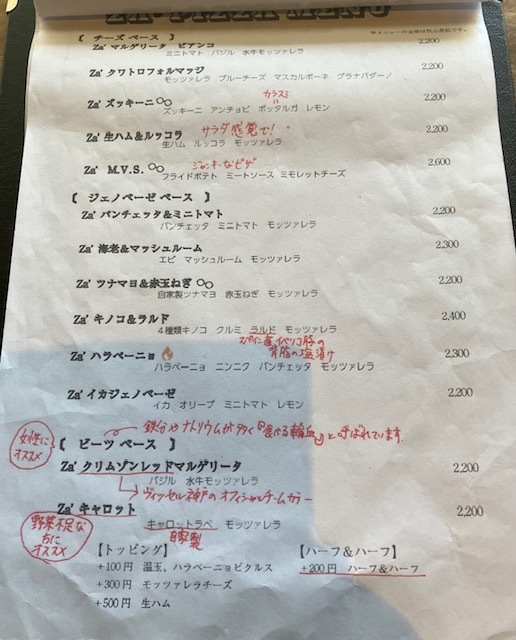 ZA'PIZZA MENU
【 チーズ ベース 】
Za' マルゲリータ ビアンコ 2,200
ミニトマト バジル 水牛モッツァレラ
Za' クワトロフォルマッジ 2,200
モッツァレラ ブルーチーズ マスカルポーネ グラナパダーノ
カラスミ
Za' ズッキーニ 2,200
ズッキーニ アンチョビ ボッタルガ レモン
Za' 生ハム&ルッコラ サラダ感覚で! 2,200
生ハム ルッコラ モッツァレラ
Za' M.V.S. ジャンキーなピザ 2,600
フライドポテト ミートソース ミモレットチーズ
【 ジェノベーゼ ベース 】
Za' パンチェッタ&ミニトマト 2,200
パンチェッタ ミニトマト モッツァレラ
Za' 海老&マッシュルーム 2,300
エビ マッシュルーム モッツァレラ
Za' ツナマヨ&赤玉ねぎ 2,200
自家製ツナマヨ 赤玉ねぎ モッツァレラ
Za' キノコ&ラルド 2,400
4種類キノコ クルミ ラルド モッツァレラ
スペイン産イベリコ豚の
背脂の塩漬け
Za' ハラペーニョ 2,300
ハラペーニョ ニンニク パンチェッタ モッツァレラ
Za' イカジェノベーゼ 2,200
イカ オリーブ ミニトマト レモン
鉄分やナトリウムが多く『食べる輸血』と呼ばれています。
女性に
オススメ
【 ビーツ ベース 】
Za' クリムゾンレッドマルゲリータ 2,200
バジル 水牛モッツァレラ
ヴィッセル神戸のオフィシャルチームカラー
Za' キャロット 2,200
キャロットラペ モッツァレラ
自家製
野菜不足な
方に
オススメ
【トッピング】
+100円 温玉、ハラペーニョピクルス
+300円 モッツァレラチーズ
+500円 生ハム
【ハーフ&ハーフ】
+200円 ハーフ&ハーフ